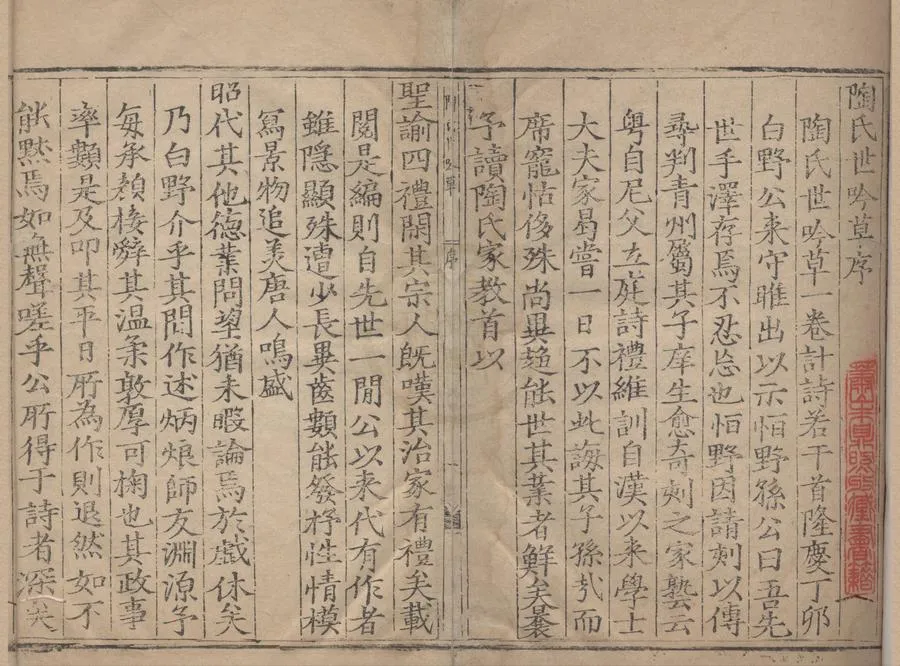 陶氏世吟草序
陶氏世吟草一卷計詩若干首隆慶丁卯
白野公来守睢出以示怕野孫公曰吾先
世手澤存焉不忍忘也怕野因請刻以傳
尋判青州屬其子庠生愈奇刻之家塾云
粤自尼父立庭詩禮維訓自漢以来學士
大夫家曷嘗一日不以此誨其子孫㢤而
席寵怙侈殊尚異趨能世其業者鮮矣曩
予讀陶氏家教首以
陶氏吟草
序
聖諭四禮閑其宗人既嘆其治家有禮矣載
閱是編則自先世一閒公以来代有作者
雖隱顯殊遭少長異齒類能發抒性情模
寫景物追美唐人鳴盛
昭代其他德業問望猶未暇論焉於戲休矣
乃白野介乎其間作述炳烺師友淵源予
每承顔接辭其温柔敦厚可掬也其政事
率類是及叩其平日所為作則退然如不
能默焉如無聲嗟乎公所得于詩者深矣